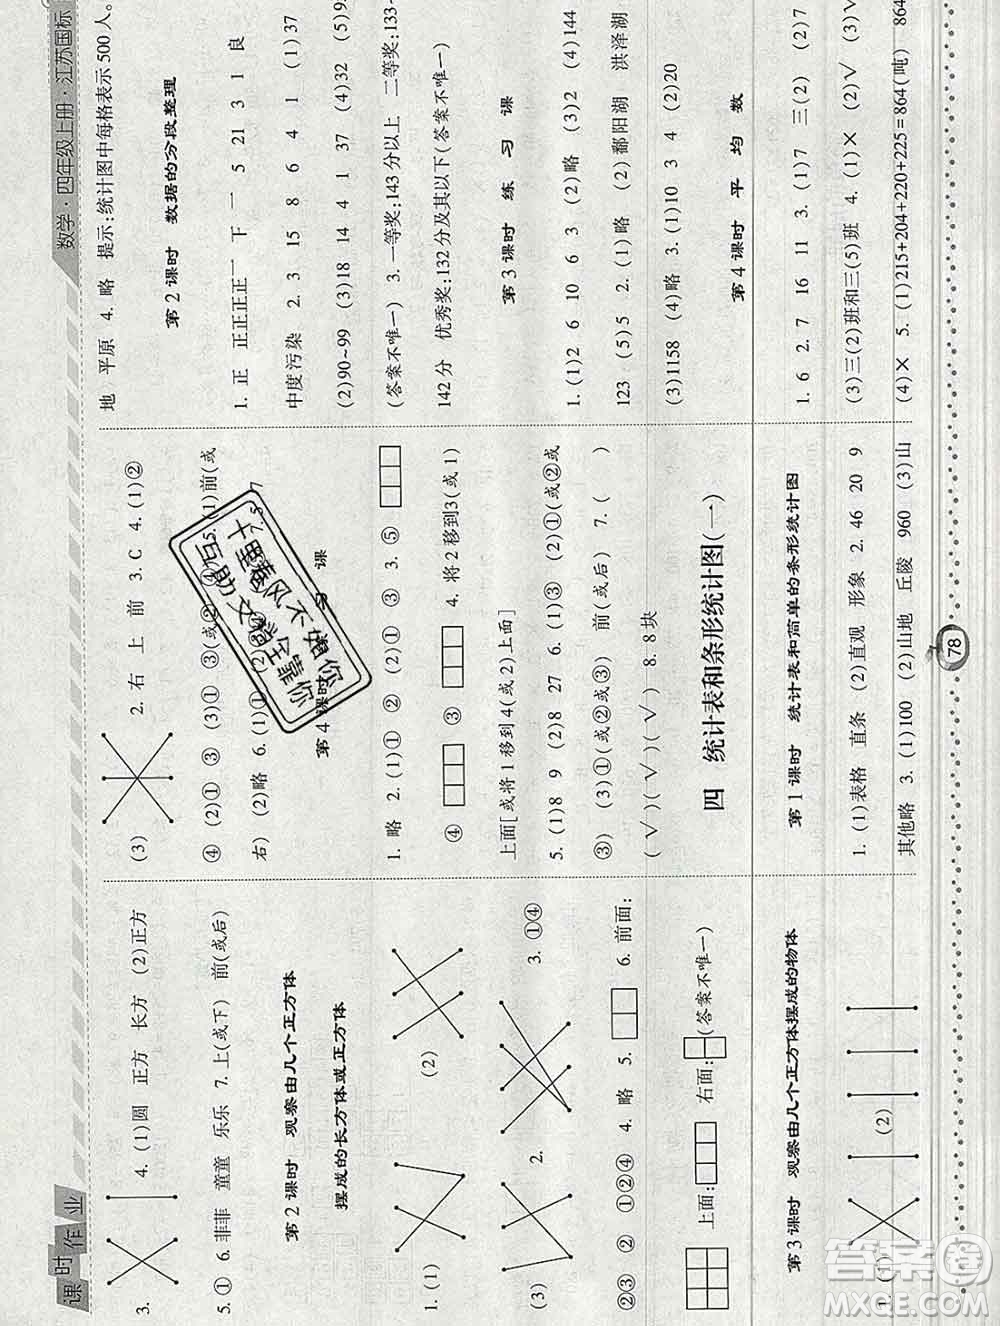 课时作业
数学·四年级上册·江苏国标
3.
4. (1)圆 正方 长方 (2)正方
5. ① 6. 菲菲 童童 乐乐 7. 上(或下) 前(或后)
第 2 课时 观察由几个正方体
摆成的长方体或正方体
1. (1)
(2)
(3)
2.
3. ①④
②③ ② ①②④ 4. 略 5.
6. 前面:
上面:
右面:
(答案不唯一)
第 3 课时 观察由几个正方体摆成的物体
1. (1)
(2)
(3)
2. 右 上 前 3. C 4. (1)②
④ (2)① ③ (3)①
5. (1)前(或
右) (2)略 6. (1)①
第 4 课时
课
1. 略 2. (1)① ② (2)① ③ 3. ⑤
④
③
4. 将 2 移到3(或 1)
上面[或将 1 移到 4(或 2)上面]
5. (1)8 9 (2)8 27 6. (1)③ (2)①(或②或
③) (3)①(或②或③) 前(或后) 7. ( )
(√)(√)(√) 8. 8 块
四 统计表和条形统计图(一)
第 1 课时 统计表和简单的条形统计图
1. (1)表格 直条 (2)直观 形象 2. 46 20 9
其他略 3. (1)100 (2)山地 丘陵 960 (3)山
地 平原 4. 略 提示:统计图中每格表示 500 人。
第 2 课时 数据的分段整理
1. 正 正正正正一 下 一 5 21 3 1 良
中度污染 2. 3 15 8 6 4 1 (1)37
(2)90~99 (3)18 14 4 1 37 (4)32 (5)9
(答案不唯一) 3. 一等奖:143 分以上 二等奖:133-
142 分 优秀奖:132 分及其以下(答案不唯一)
第 3 课时 练 习 课
1. (1)2 6 10 6 3 (2)略 (3)2 (4)144
123 (5)5 2. (1)略 (2)鄱阳湖 洪泽湖
(3)1158 (4)略 3. (1)10 3 4 (2)20
第 4 课时 平 均 数
1. 6 2. 7 16 11 3. (1)7 三(2) (2)7
(3)三(2)班和三(5)班 4. (1)× (2)√ (3)√
(4)× 5. (1)215+204+220+225=864(吨) 864
78
十里春风不如你
互助文
全靠你
答案圈
MXQE.COM